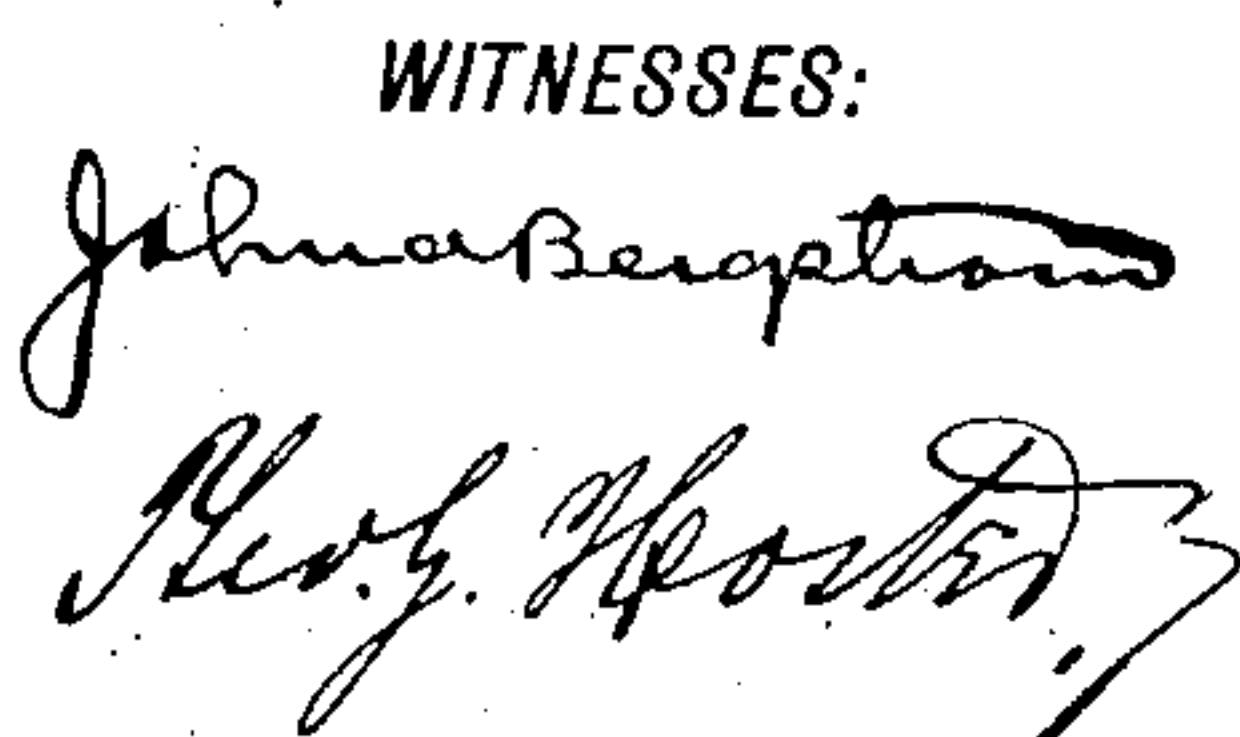 WITNESSES:
John a Bergstrom
Theo. G. Hoster